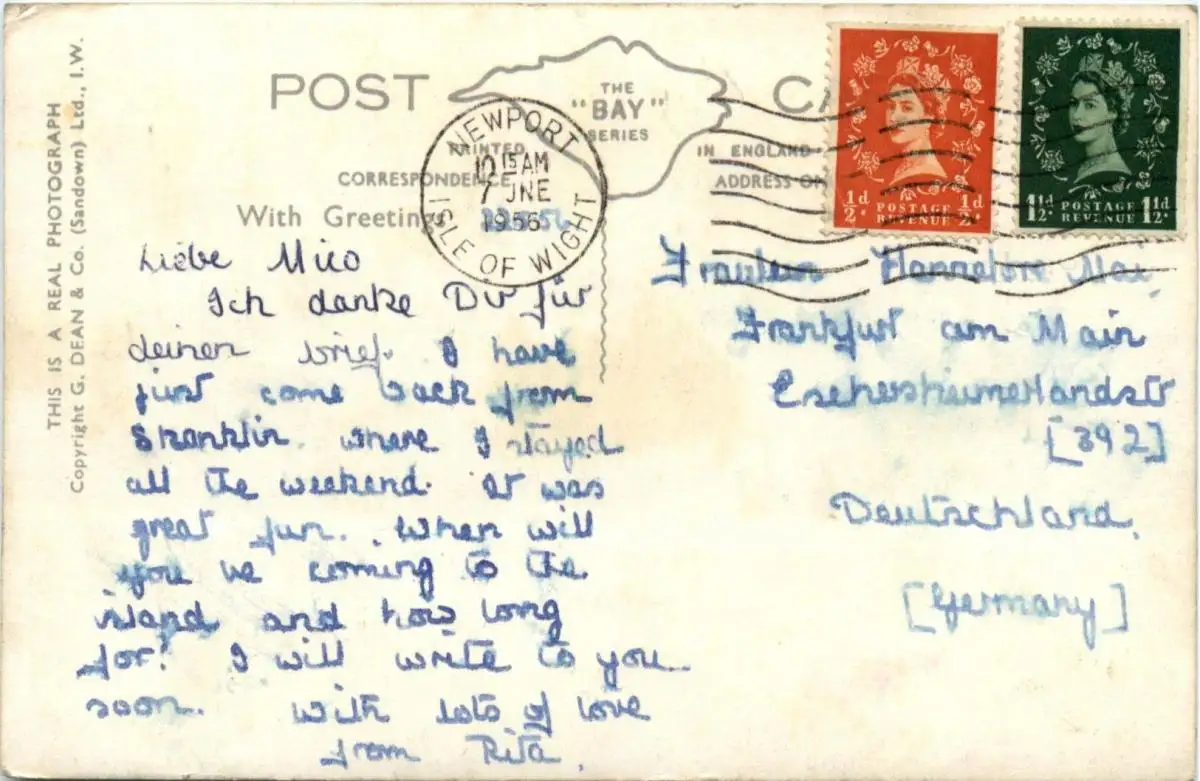 POST CA
THE
"BAY"
SERIES
PRINTED IN ENGLAND
CORRESPONDENCE ADDRESS ON
With Greetings
NEWPORT
10 15 AM
7 JNE
1956
ISLE OF WIGHT
½d POSTAGE ½d
REVENUE
1½d POSTAGE 1½d
REVENUE
THIS IS A REAL PHOTOGRAPH
Copyright G. DEAN & Co. (Sandown) Ltd., I.W.
Liebe Mico
Ich danke Dir für
deinen brief. I have
just come back from
Shanklin. where I stayed
all the weekend. It was
great fun. When will
you be coming to the
island and how long
for? I will write to you
soon. With lots of love
from Rita.
Fraulein Hannelore Mai,
Frankfurt am Main
Eschersheimerlandstr
[392]
Deutschland.
[Germany]